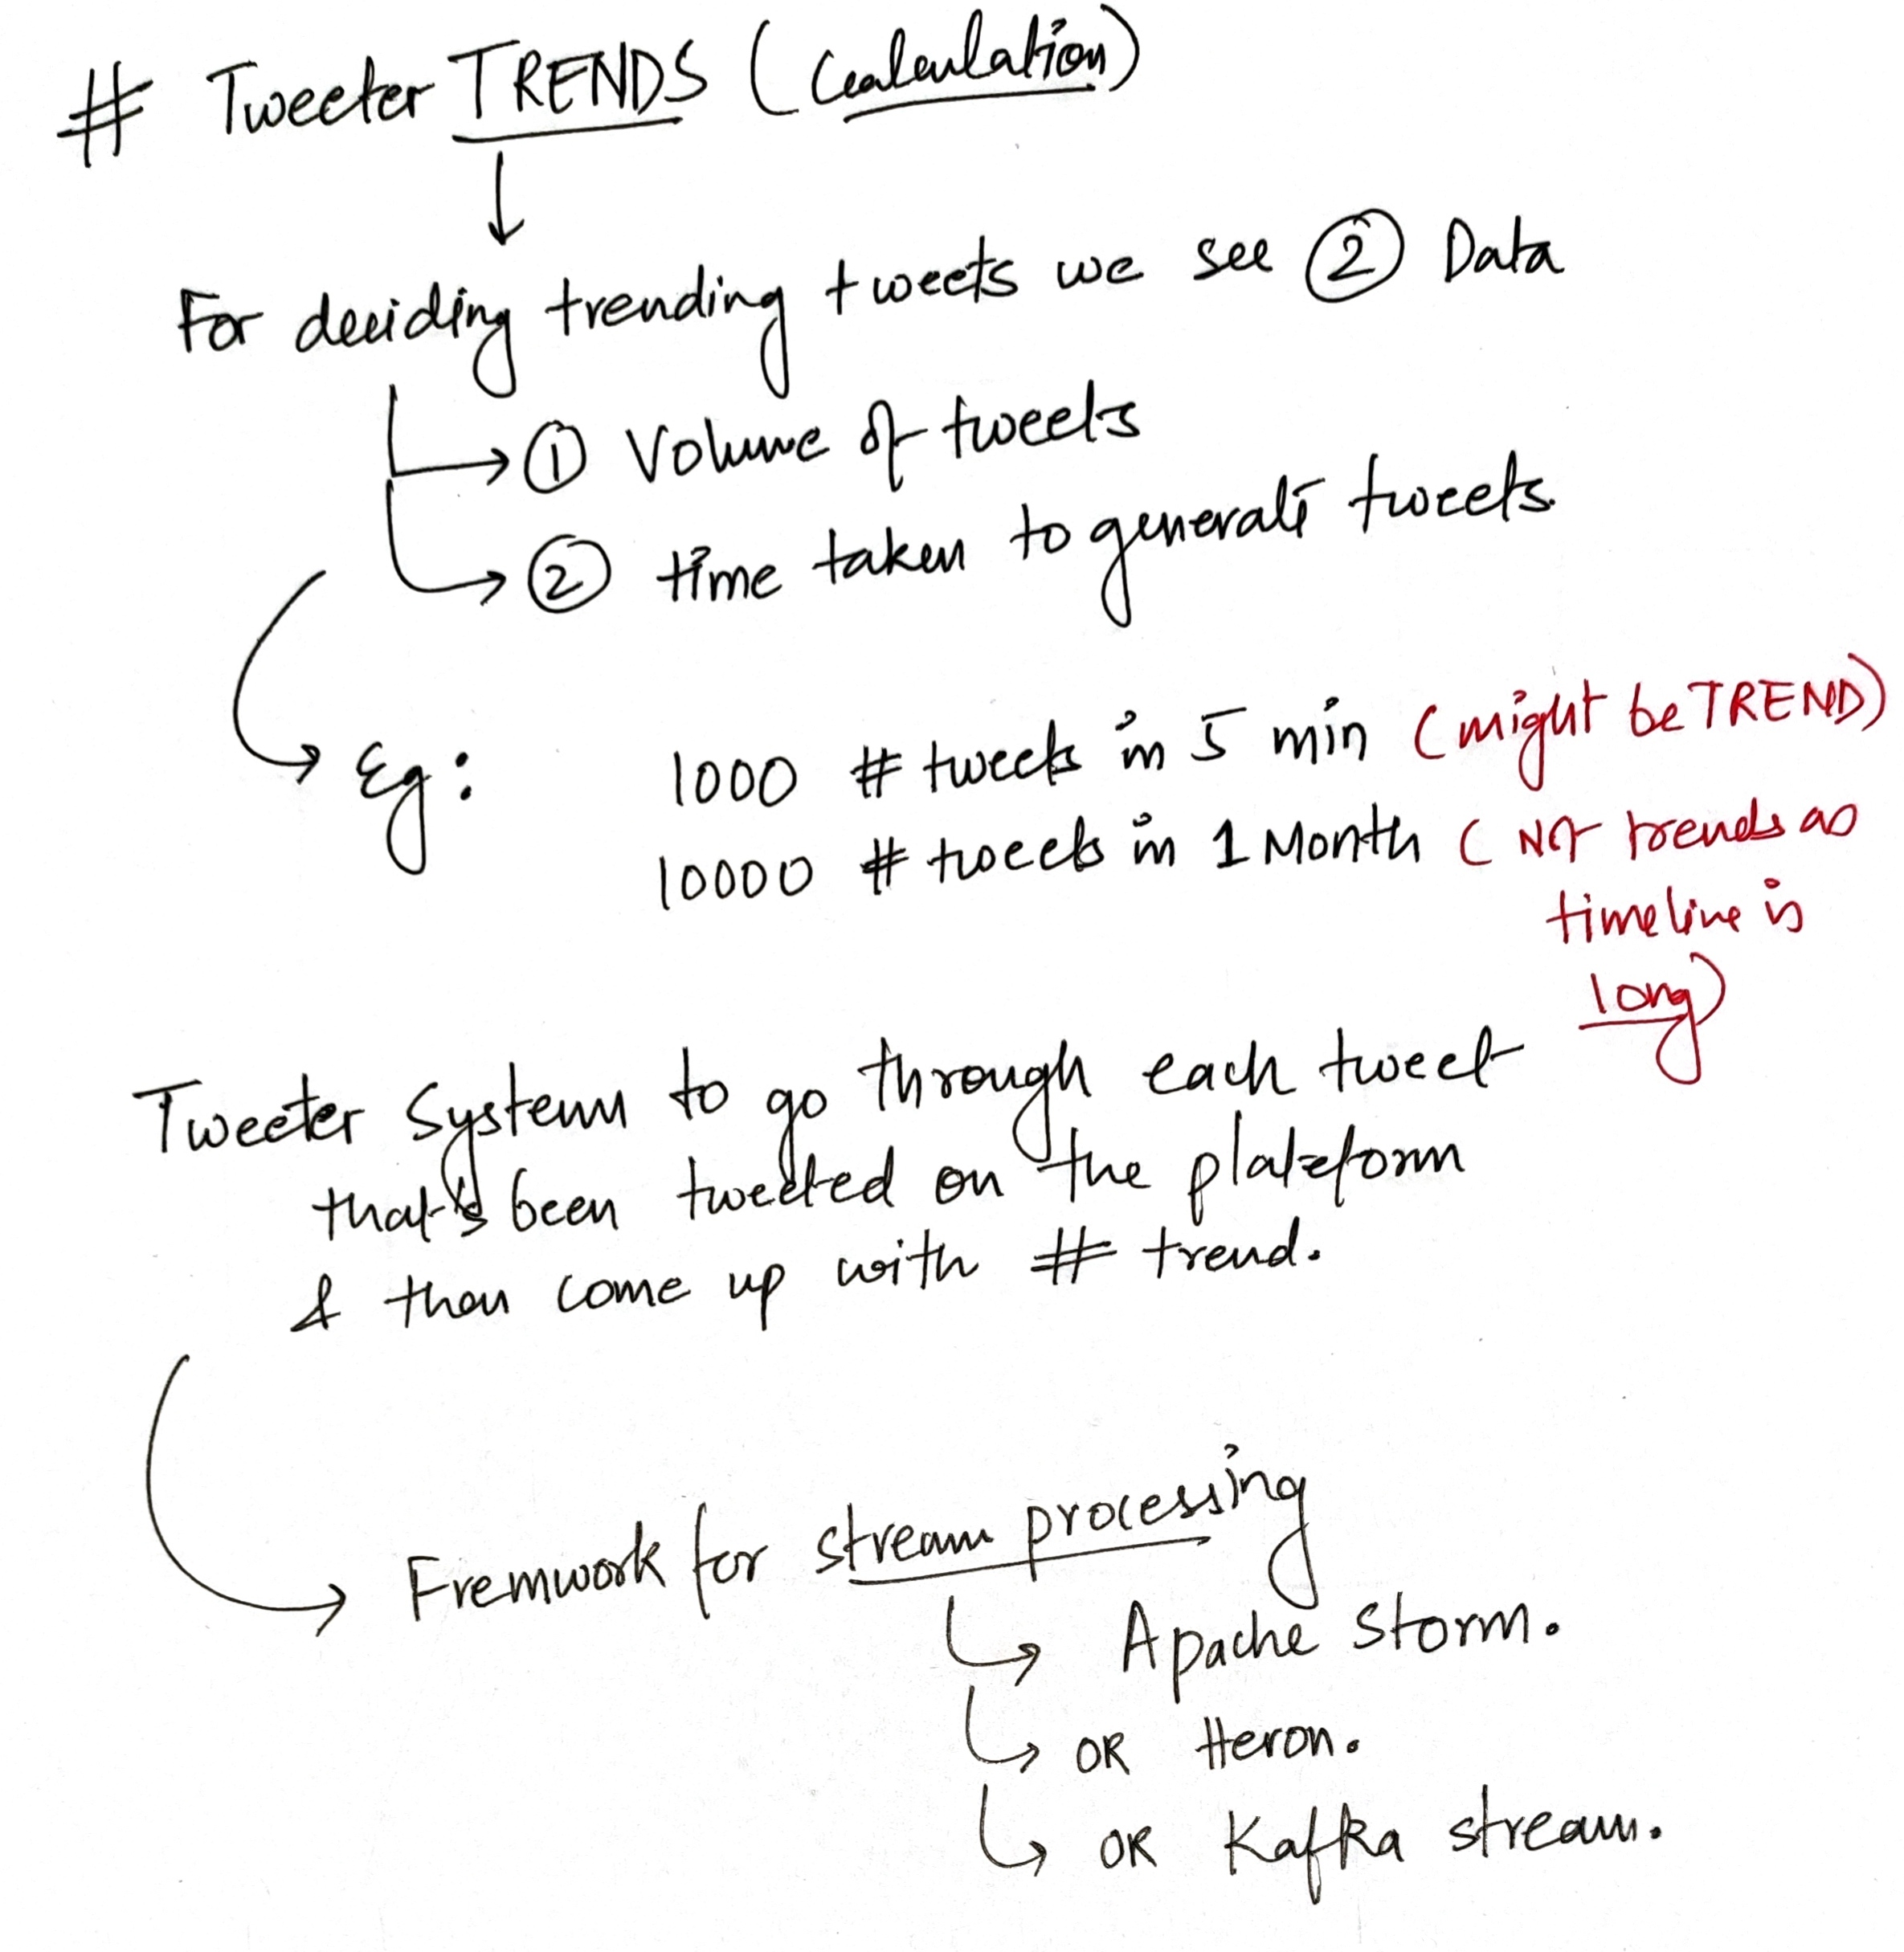 # Tweeter TRENDS (Calculation)
For deciding trending tweets we see 2 Data
1 Volume of tweets
2 time taken to generate tweets.
Eg: 1000 # tweets in 5 min (might be TREND)
10000 # tweets in 1 Month (Not trends as
timeline is
long)
Tweeter system to go through each tweet
that's been tweeted on the plateform
& then come up with # trend.
Fremwork for stream processing
Apache Storm.
OR Heron.
OR Kafka stream.